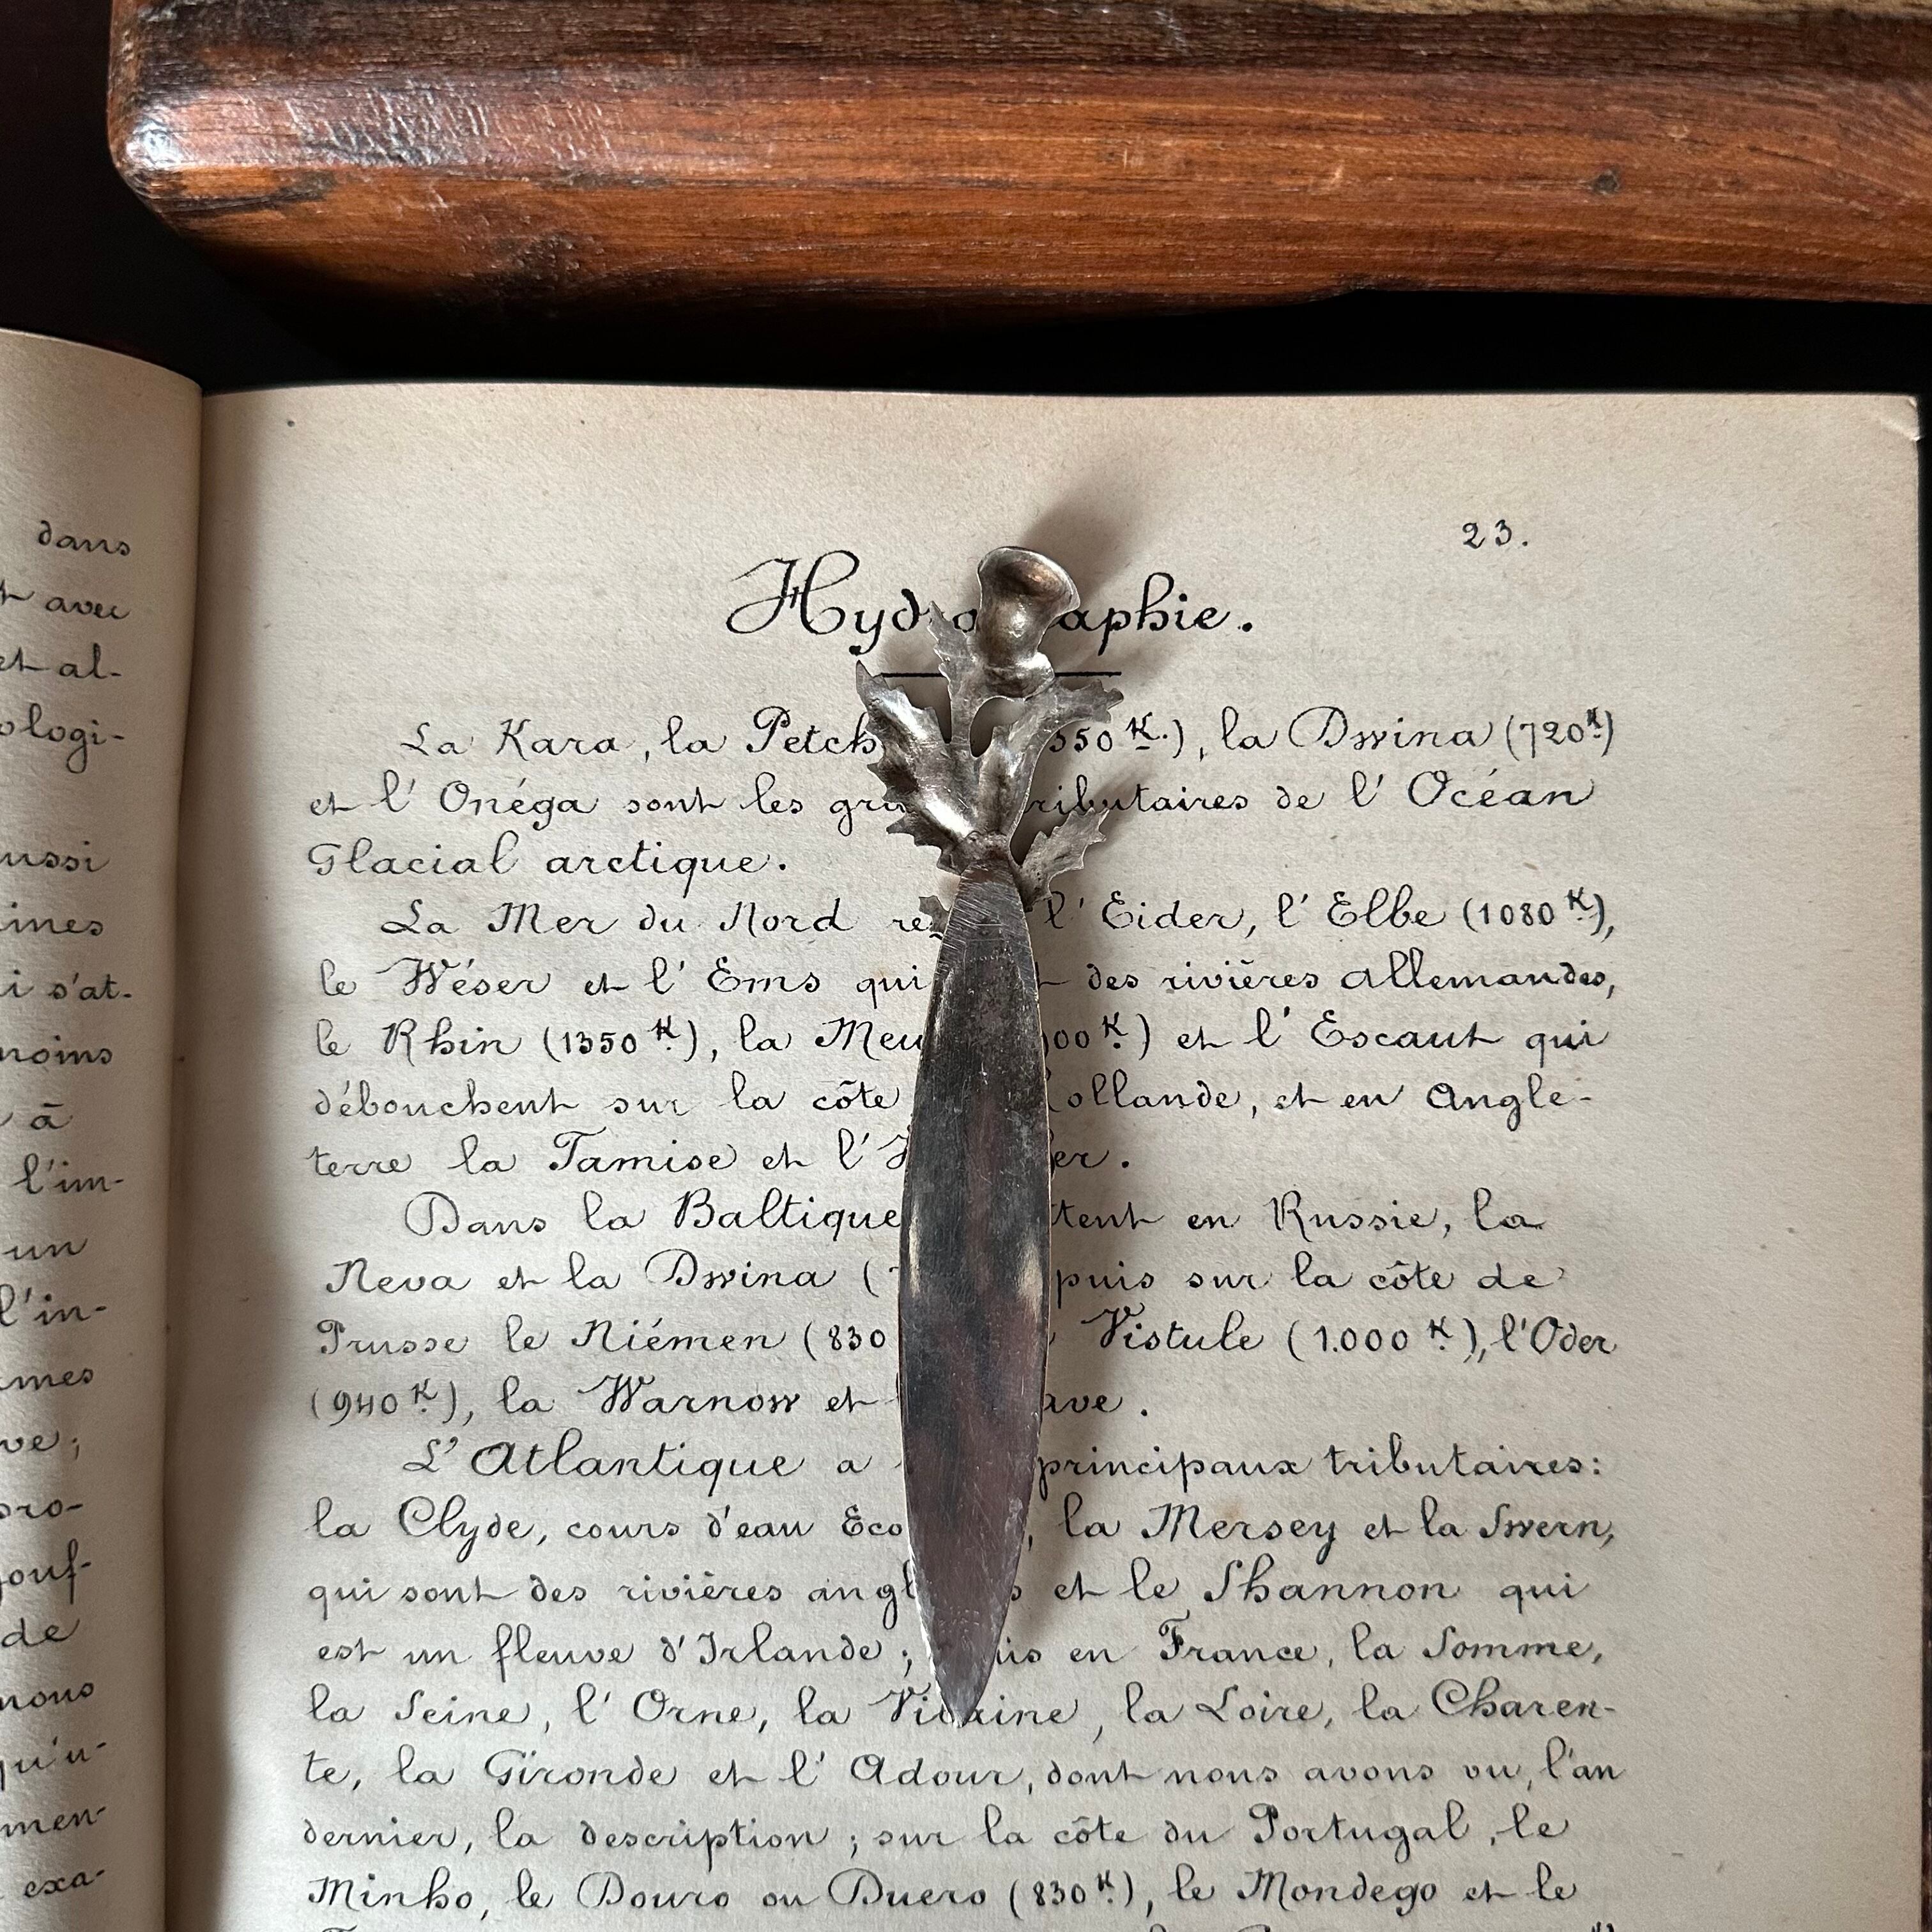 dans
avec
et al-
ologi-
ussi
ines
i s'at-
moins
à
l'im-
un
l'in-
mes
ve;
pro-
ouf-
de
nous
qu'u-
men-
exa-
23.
Hyd o aphie.
La Kara, la Petch 550 K.), la Dwina (720 K.)
et l'Onéga sont les gr ributaires de l'Océan
Glacial arctique.
La Mer du Nord re- l'Eider, l'Elbe (1080 K.),
le Wéser et l'Ems qui des rivières allemandes,
le Rhin (1350 K.), la Meu 00 K.) et l'Escaut qui
débouchent sur la côte ollande, et en Angle-
terre la Tamise et l' er.
Dans la Baltique tent en Russie, la
Neva et la Dwina ( puis sur la côte de
Prusse le Niémen (830 Vistule (1.000 K.), l'Oder
(940 K.), la Warnow et ave.
L'Atlantique a principaux tributaires:
la Clyde, cours d'eau Eco , la Mersey et la Swern,
qui sont des rivières angl s et le Shannon qui
est un fleuve d'Irlande; is en France, la Somme,
la Seine, l'Orne, la Vilaine, la Loire, la Charen-
te, la Gironde et l'Adour, dont nous avons vu, l'an
dernier, la description; sur la côte du Portugal, le
Minho, le Douro ou Duero (830 K.), le Mondego et le